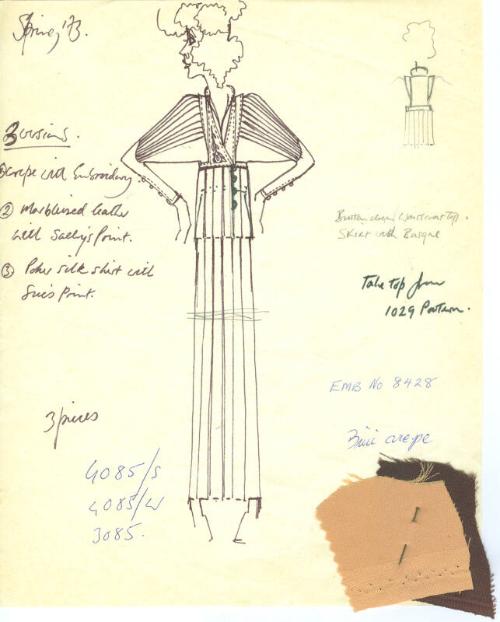 Spring '73.
3 versions.
① crepe with Embroidery
② Marbleised leather
with Sally's Print.
③ silk shirt with
Print.
Button down Waistcoat Top.
Skirt with Basque
Take top from
1029 Pattern.
EMB No 8428
crepe
3 pieces
4085/S
4085/W
3085.